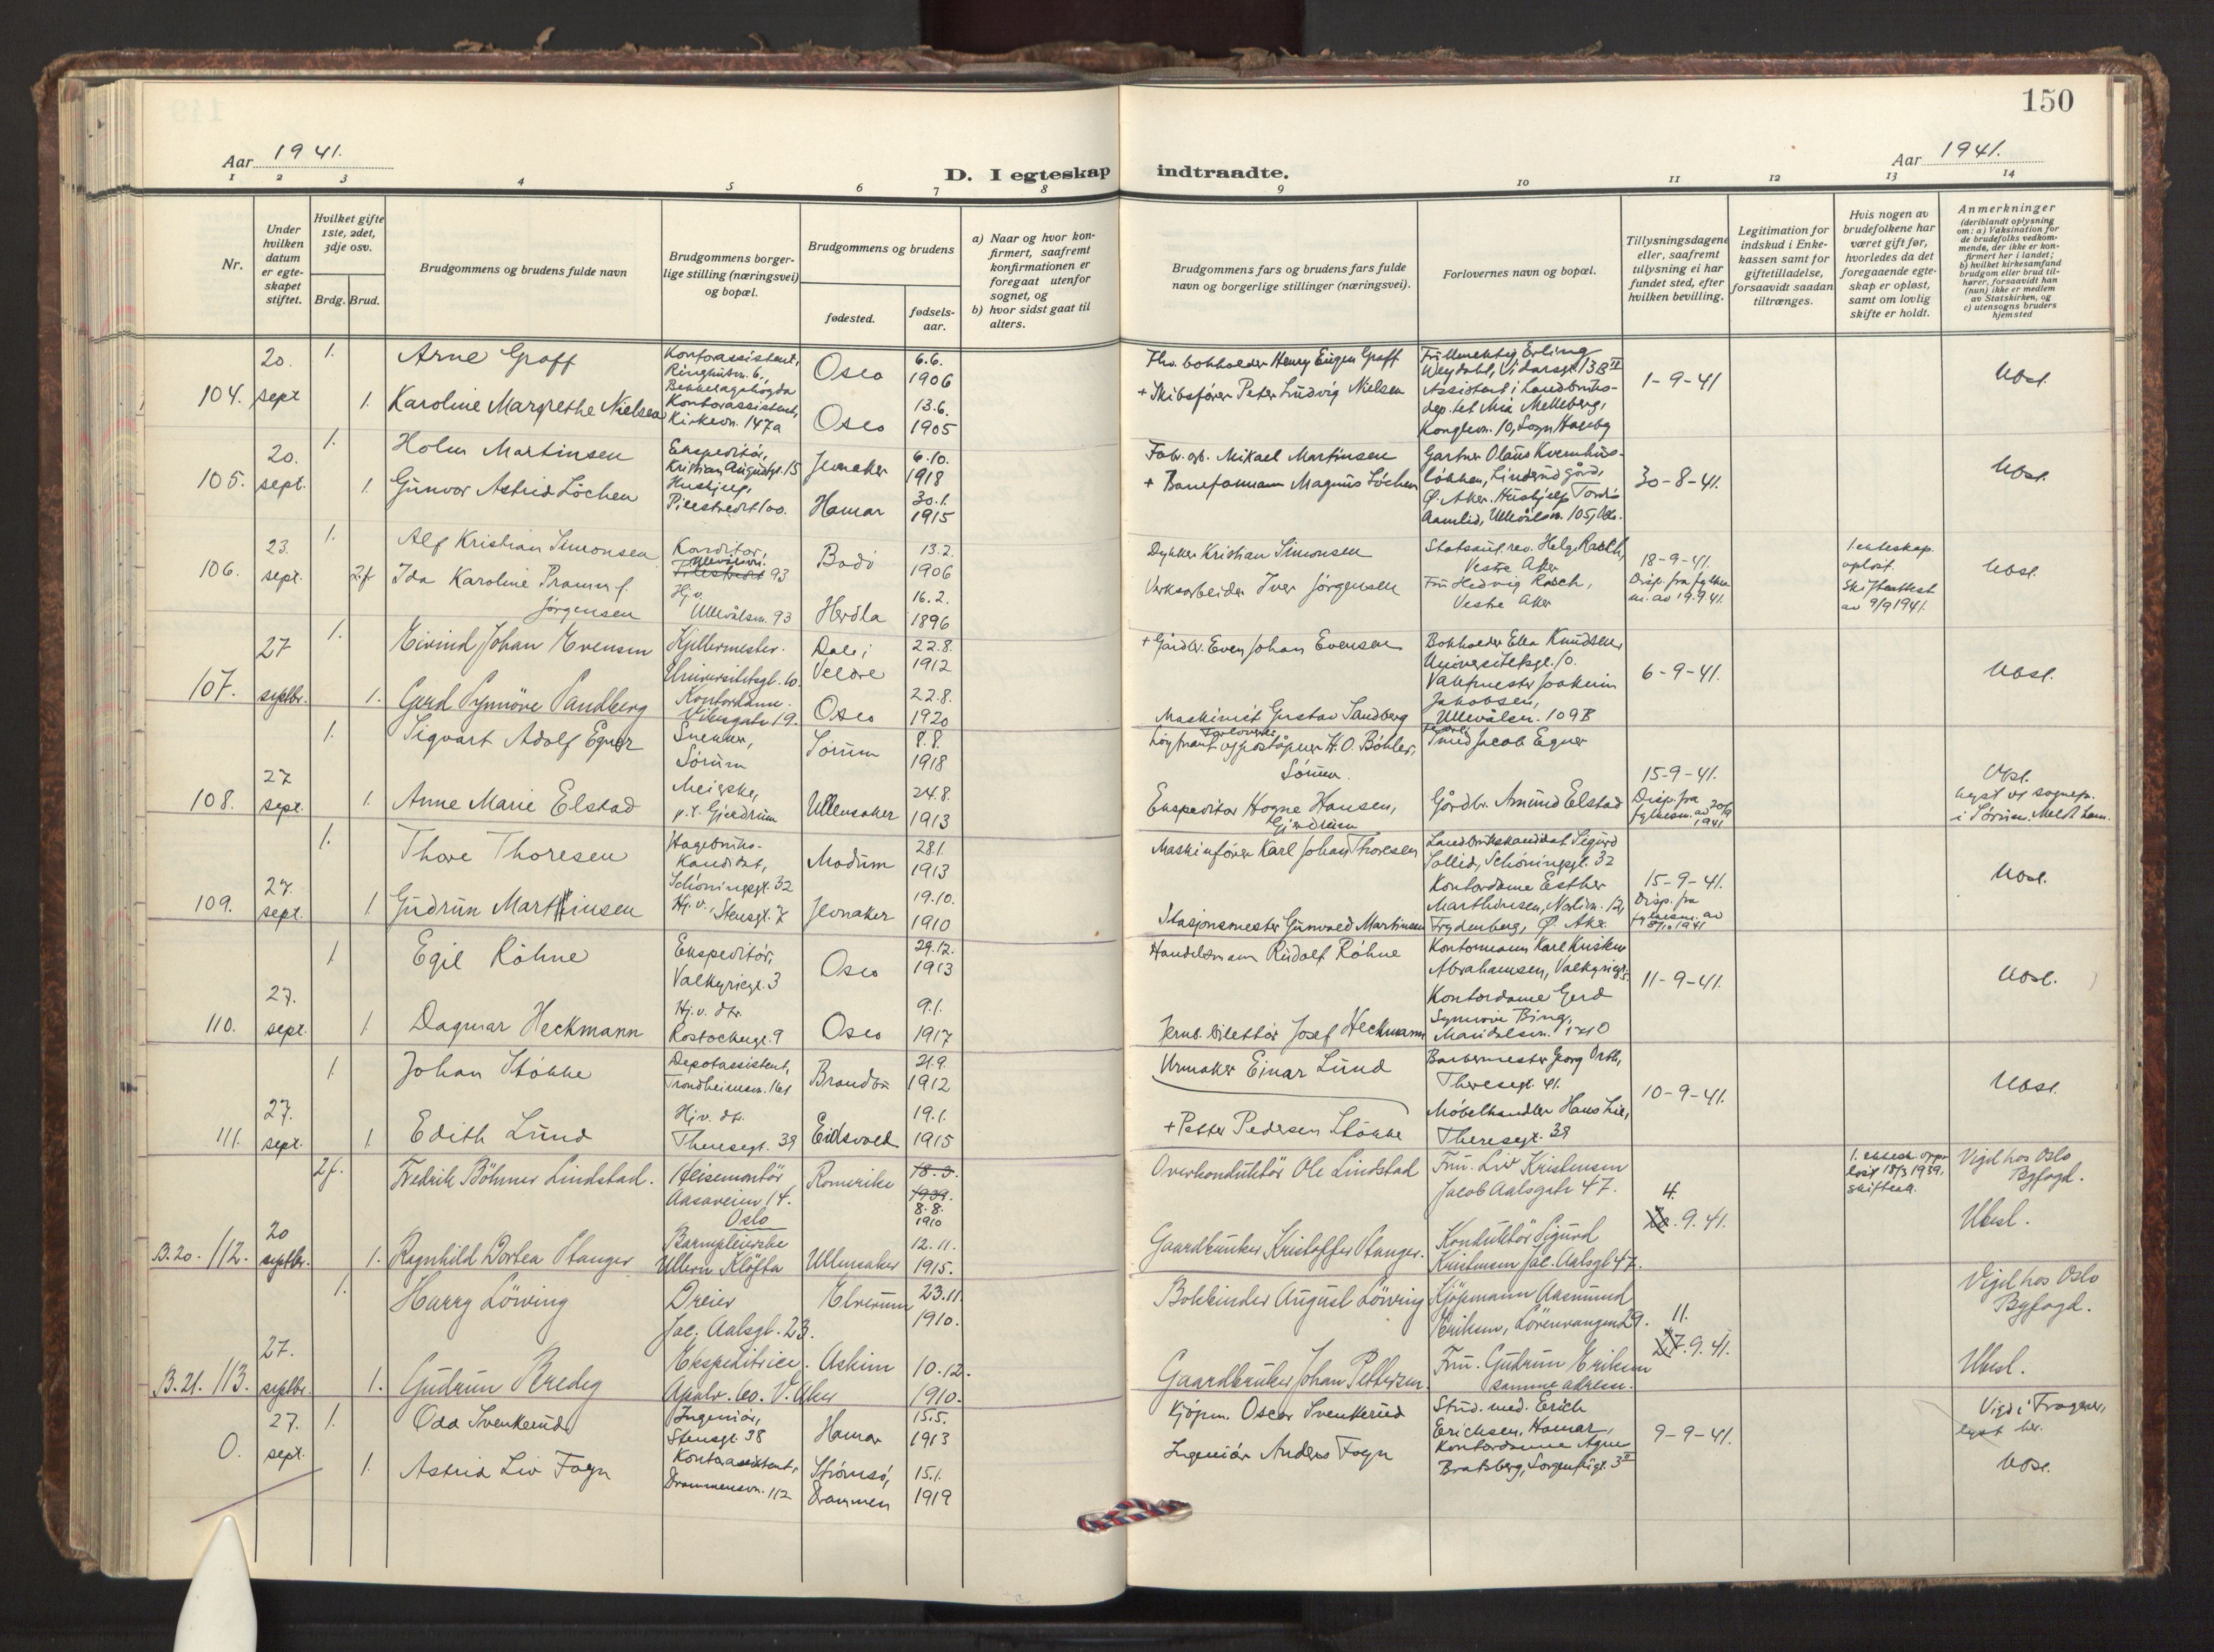 150
Aar 1941.
D. I egteskap indtraadte.
Aar 1941.
1 2 3 4 5 6 7 8 9 10 11 12 13 14
Nr.
Under hvilken datum er egte-skapet stiftet.
Hvilket gifte 1ste, 2det, 3dje osv.
Brdg. Brud.
Brudgommens og brudens fulde navn
Brudgommens borger-lige stilling (næringsvei) og bopæl.
Brudgommens og brudens
fødested.
fødsels-aar.
a) Naar og hvor kon-firmert, saafremt konfirmationen er foregaat utenfor sognet, og
b) hvor sidst gaat til alters.
Brudgommens fars og brudens fars fulde navn og borgerlige stillinger (næringsvei).
Forlovernes navn og bopæl.
Tillysningsdagene eller, saafremt tillysning ei har fundet sted, efter hvilken bevilling.
Legitimation for indskud i Enke-kassen samt for giftetilladelse, forsaavidt saadan tiltrænges.
Hvis nogen av brudefolkene har været gift før, hvorledes da det foregaaende egte-skap er opløst, samt om lovlig skifte er holdt.
Anmerkninger
(deriblandt oplysning om: a) Vaksination for de brudefolks vedkom-mende, der ikke er kon-firmert her i landet; b) hvilket kirkesamfund brudgom eller brud til-hører, forsaavidt han (hun) ikke er medlem av Statskirken, og c) utensogns bruders hjemsted
104. 20. sept
1. Arne Graff
Kontorassistent, Oslo 6.6. 1906
1. Karoline Margrethe Nielsen
Kontorassistent, Kirkevn. 147a Oslo 13.6. 1905
Fhv. bokholder Henry Eugen Graff
+ Skibsfører Peter Ludvig Nielsen
Fullmektig Erling
Assistent i Landbruks-
dep.tet Mia Melleberg,
Konglevn. 10, Sogn Hageby
1-9-41
Ubsl.
105. 20. sept.
1. Holm Martinsen
Ekspeditør, Kristian Augustgt. 15 Jevnaker 6.10. 1918
1. Gunvor Astrid Löchen
Hushjelp, Pilestredet 100. Hamar 30.1. 1915
Fabr. arb. Mikael Martinsen
+ Baneformann Magnus Löchen
Gartner Olaus Kvernhus-
løkken, Linderud gård,
Ø. Aker. Hushjelp Tordis
Aamlid, Ullevålsvn. 105, Oslo.
30-8-41.
Ubsl.
106. 23. sept.
1. Alf Kristian Simonsen
Konditor, Ullevålsvn. 93 Bodö 13.2. 1906
2.f Ida Karoline Pramm f. Jörgensen
Hj.v. Ullevålsvn. 93 Herdla 16.2. 1896
Dykker Kristian Simonsen
Verksarbeider Iver Jörgensen
Statsaut. rev. Helge Rasch,
Vestre Aker
Fru Hedvig Rasch,
Vestre Aker
18-9-41.
Disp. fra fylkes
m. av 19.9.41.
1. ekteskap.
oplöst.
Skifteattest
av 9/9 1941.
Ubsl.
107. 27 septbr.
1. Eivind Johan Evensen
Kjellermester. Universitetsgt. 10. Dal i Veldre 22.8. 1912
1. Gerd Synnöve Sandberg
Kontordame. Vibesgate 19. Oslo 22.8. 1920
+ Gårdbr. Even Johan Evensen
Maskinist Gustav Sandberg
Bokholder Ella Knudsen,
Universitetsgt. 10.
Vaktmester Joakim
Jakobsen,
Ullevålsvn. 109B
6-9-41.
Ubsl.
108. 27 sept.
1. Sigvart Adolf Egner
Snekker, Sörum Sörum 8.8. 1918
1. Anne Marie Elstad
Meierske, p.t. Gjerdrum Ullensaker 24.8. 1913
Forlovere:
H.O. Böhler,
Sörum.
Ekspeditör Hogne Hansen,
Gjerdrum
Smed Jacob Egner
Gårdbr. Amund Elstad
15-9-41.
Disp. fra
fylkesm. av 20/9
1941
Ubsl.
i Sörum.
109. 27. sept.
1. Thore Thoresen
Hagebruks-kandidat, Schöningsgt. 32 Modum 28.1. 1913
1 Gudrun Martinsen
Hj.v., Stensgt. 7 Jevnaker 19.10. 1910
Maskinförer Karl Johan Thoresen
Stasjonsmester Gunvald Martinsen
Landbrukskandidat Sigurd
Sollid, Schöningsgt. 32
Kontordame Esther
Marthinsen,
Frydenberg, Ø. Aker.
15-9-41.
Disp. fra
fylkesm. av
Ubsl.
110. 27. sept.
1 Egil Röhne
Ekspeditör, Valkyriegt. 3 Oslo 29.12. 1913
1 Dagmar Heckmann
Hj.v. dtr. Rostockergt. 9 Oslo 9.1. 1917
Handelsmann Rudolf Röhne
Josef Heckmann
Kontormann Karl Kristian
Abrahamsen, Valkyriegt. 5.
Kontordame Gerd
Synnöve Bing,
11-9-41.
Ubsl.
111. 27. sept.
1 Johan Stökke
Depotassistent, Trondheimsvn. 161 Brandbu 21.9. 1912
1 Edith Lund
Hjv. dtr. Theresegt. 39 Eidsvold 19.1. 1915
Urmaker Einar Lund
+ Petter Pedersen Stökke
Barbermester Georg Orth,
Theresegt. 41.
Möbelhandler Hans Lie,
Theresegt. 39
10-9-41.
Ubsl.
B.20. 112. 20 septbr.
2.f. Fredrik Böhmer Lindstad.
Heisemontör Aasaveien 14. Oslo Romerike 18.3. 1939. 8.8. 1910
1. Ragnhild Dortea Stanger
Barnepleierske Ullern Klöfta Ullensaker 12.11. 1915.
Overkonduktör Ole Lindstad
Gaardbruker Kristoffer Stanger.
Fru. Liv Kristensen
Jacob Aalsgate 47.
Konduktör Sigurd
Kristensen Jac. Aalsgt 47.
4.
20. 9. 41.
1. ektesk. opp-
löst 18/3 1939.
skifteatt.
Vigd hos Oslo
Byfogd.
Ubesl.
B.21. 113. 27. septbr.
1. Harry Löwing
Dreier Jac. Aalsgt. 23. Elverum 23.11. 1910.
1. Gudrun Bredeg
Ekspeditrice. Askim 10.12. 1910.
Bokbinder August Löwing
Gaardbruker Johan Pettersen.
Kjöpmann Aasmund
Eriksen, Lörenvangen 29.
Fru. Gudrun Eriksen
samme adresse.
11.
27. 9. 41.
Vigd hos Oslo
Byfogd.
Ubesl.
0. 27. sept.
1. Odd Svenkerud
Ingeniör, Stensgt. 38 Hamar 15.5. 1913
1. Astrid Liv Fogn
Kontorassistent, Drammensvn. 112 Strömsö, Drammen 15.1. 1919
Kjöpm. Oscar Svenkerud
Ingeniör Anders Fogn
Stud. med. Erich
Erichsen, Hamar,
Kontordame Agnes
Bratsberg, Sorgenfrigt. 3
9-9-41.
Vigd i Frogner,
lyst her.
Ubsl.